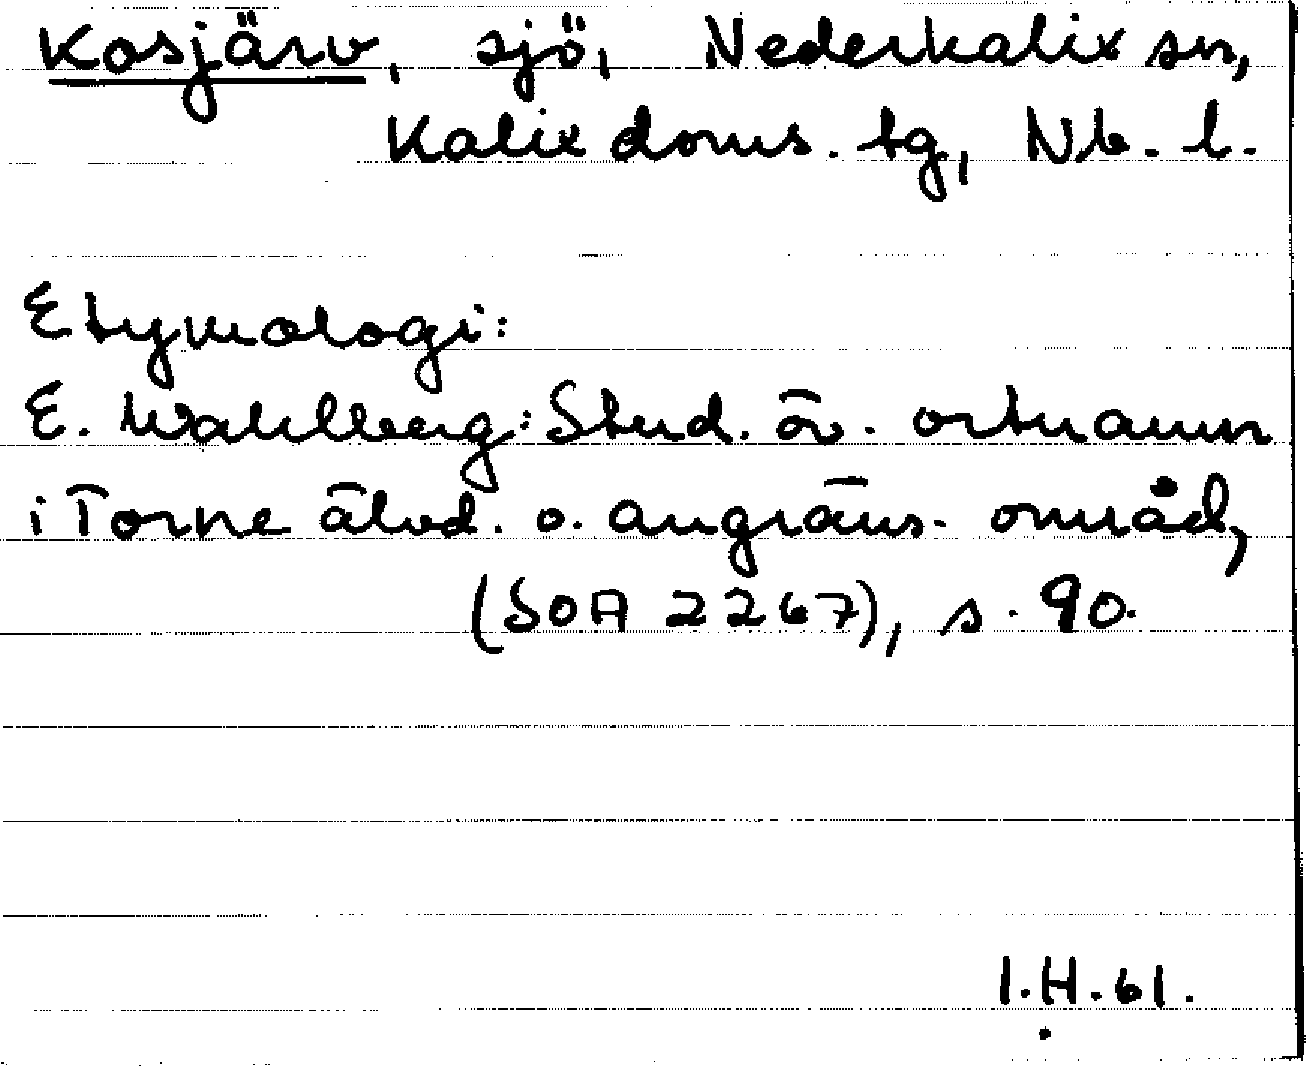 Kosjärv, sjö, Nederkalix sn,
Kalix doms. tg, Nb. l.
Etymologi:
E. Wahlberg: Stud. öv. ortnamn
i Torne älvd. o. angräns. områd,
(SOA 2267), s. 90.
I.H.61.